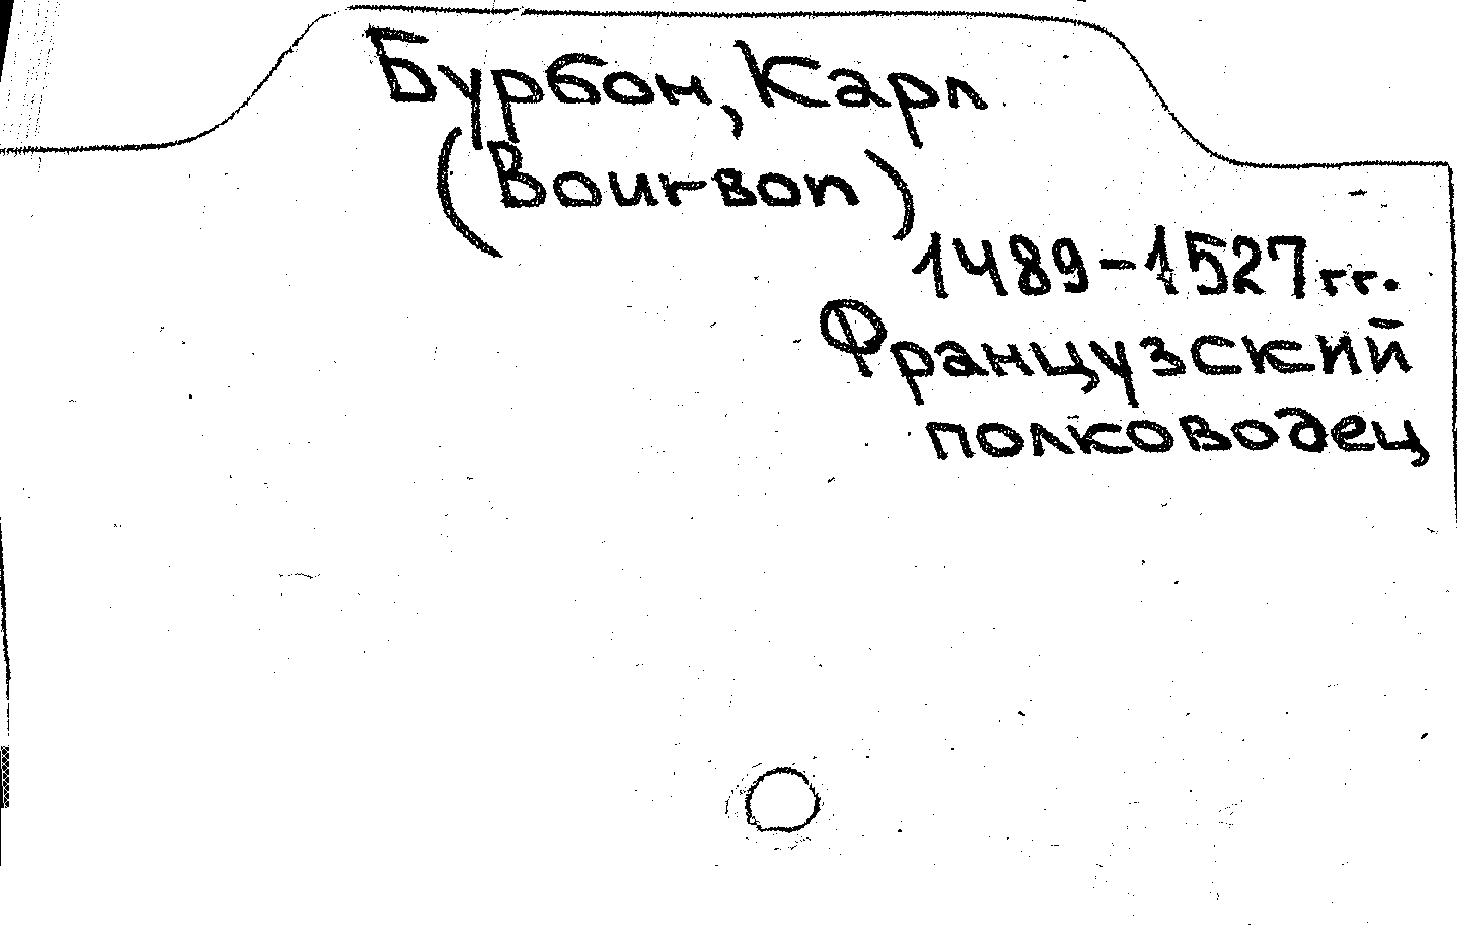 Бурбон, Карл
(Bourbon)
1489-1527 гг.
Французский
полководец